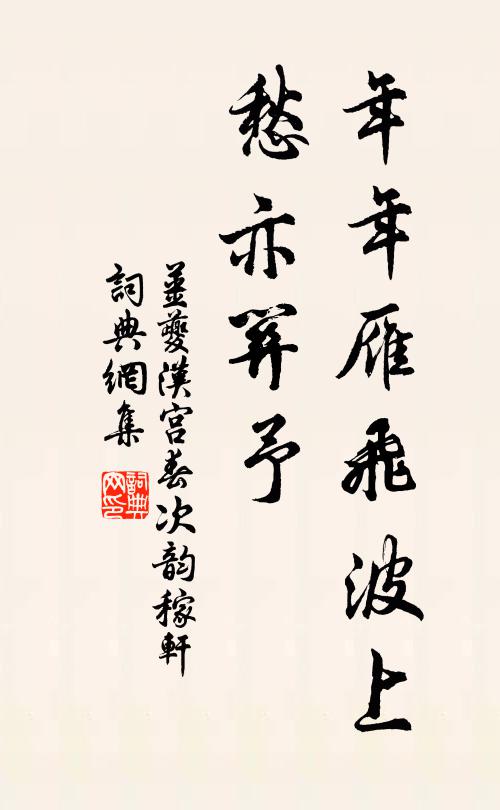 年年雁飛波上
愁亦關予
薑夔漢宮春次韵稼軒
詞典網集
詞典
网印